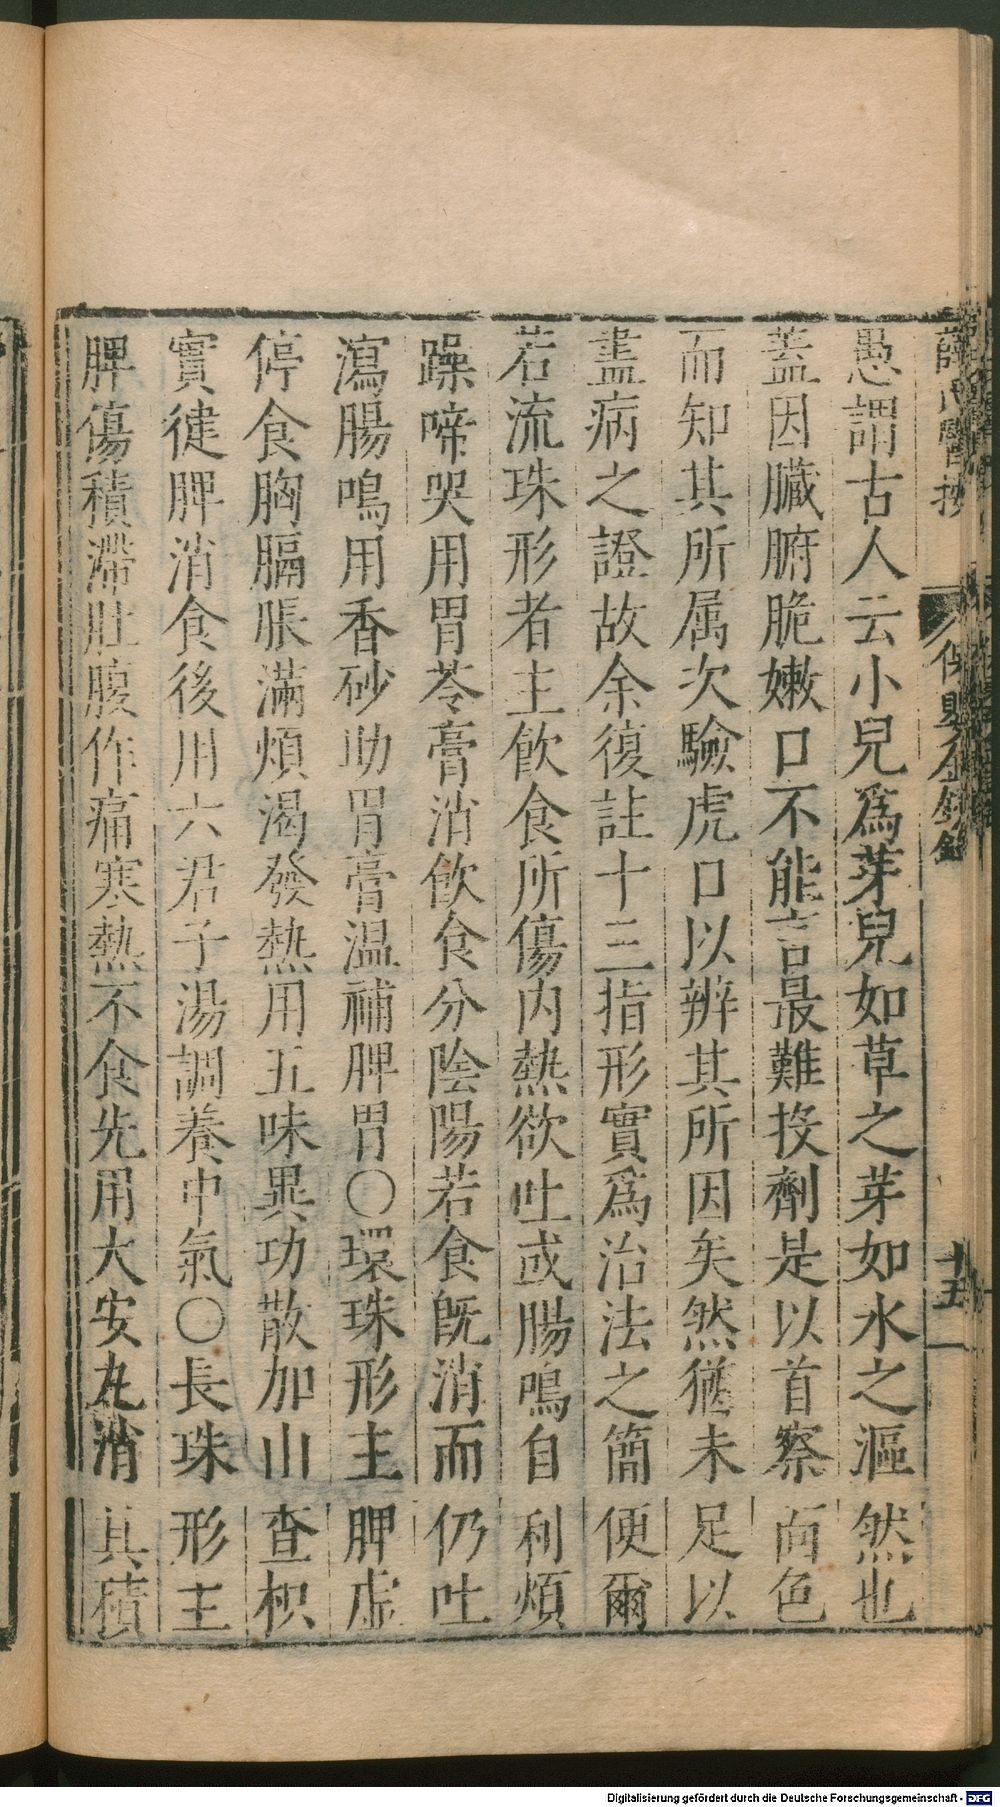 薛氏醫按 保嬰金鏡錄 十五
愚謂古人云小兒爲芽兒如草之芽如水之漚然也
蓋因臟腑脆嫩口不能言最難投劑是以首察面色
而知其所属次驗虎口以辨其所因矣然猶未足以
盡病之證故余復註十三指形實爲治法之簡便爾
若流珠形者主飲食所傷内熱欲吐或腸鳴自利煩
躁啼哭用胃苓膏消飲食分陰陽若食既消而仍吐
瀉腸鳴用香砂助胃膏温補脾胃○環珠形主脾虛
停食胸膈脹滿煩渴發熱用五味異功散加山查枳
實徤脾消食後用六君子湯調養中氣○長珠形主
脾傷積滯肚腹作痛寒熱不食先用大安丸消其積
Digitalisierung gefördert durch die Deutsche Forschungsgemeinschaft - DFG